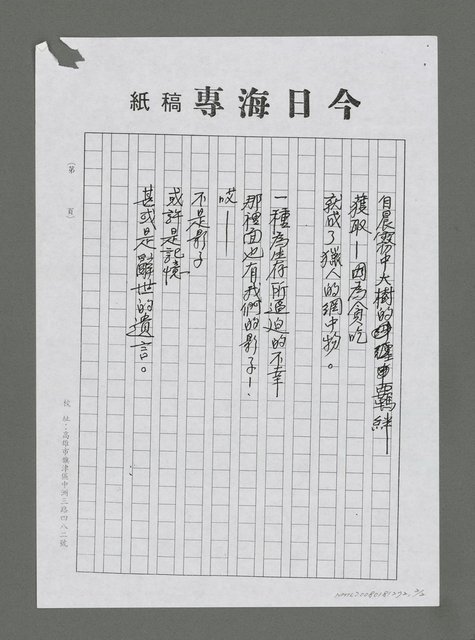 今日海專稿紙
自晨霧中大樹的羈絆
獲取—因為貪吃
就成了獵人的網中物。
一種為生存所逼迫的不幸
那裡面也有我們的影子!
哎——
不是影子
或許是記憶
甚或是辭世的遺言。
(第 頁)
校 址:高雄市旗津區中洲三路四八二號
NMTL20080181292,